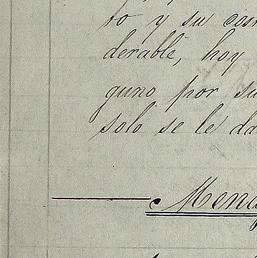 to y su con
derable, hoy
guno por su
solo se le da
Mend